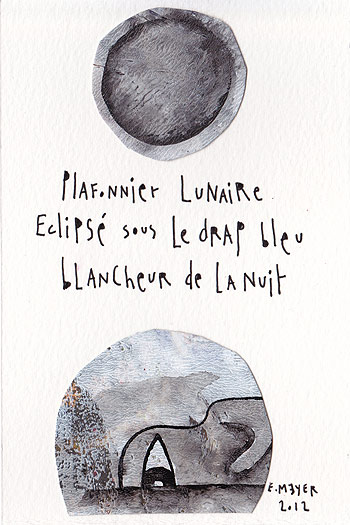 Plafonnier Lunaire
Eclipsé sous Le drap bleu
blancheur de La nuit
E. M3YER
2.12